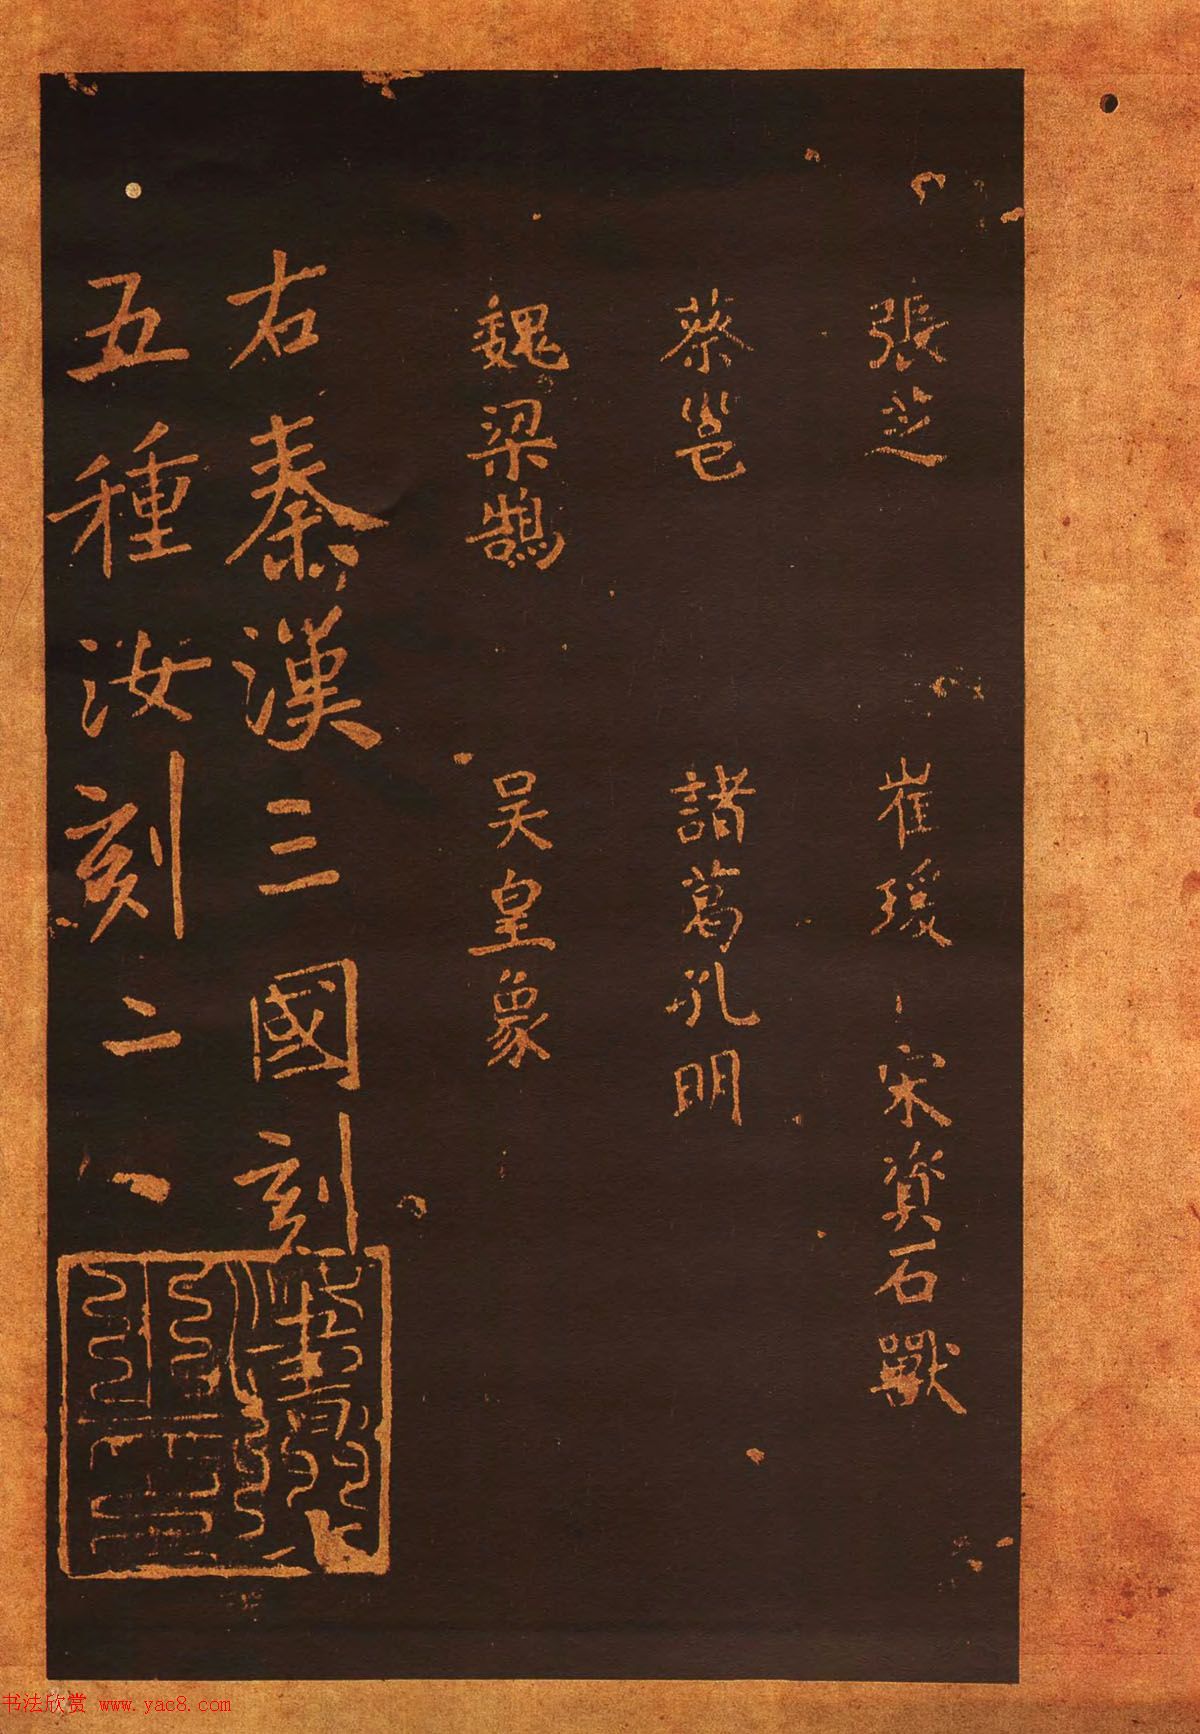 張芝 崔瑗 宋資石獸
蔡邕 諸葛孔明
魏梁鵠 吴皇象
右秦漢三國刻
五種汝刻二八
书法欣赏 www.yac8.com